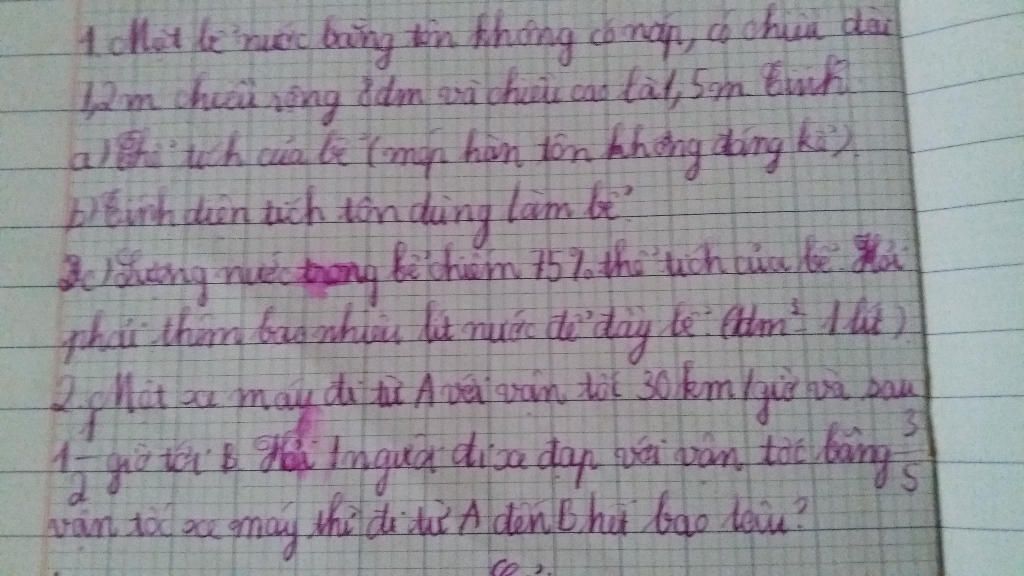 1. Một bể nước bằng tôn không có nắp, có chiều dài
1,2m chiều rộng 8dm và chiều cao là 1,5m tính
a) Thể tích của bể (mép hàn tôn không đáng kể).
b) Tính diện tích tôn dùng làm bể
c) Lượng nước trong bể chiếm 75% thể tích của bể Hỏi
phải thêm bao nhiêu lít nước để đầy bể (1dm³ 1 lít)
2. Một xe máy đi từ A với vận tốc 30km/giờ và sau
1 1/2 giờ tới B Hỏi 1 người đi xe đạp với vận tốc bằng 3/5
vận tốc xe máy thì đi từ A đến B hết bao lâu?